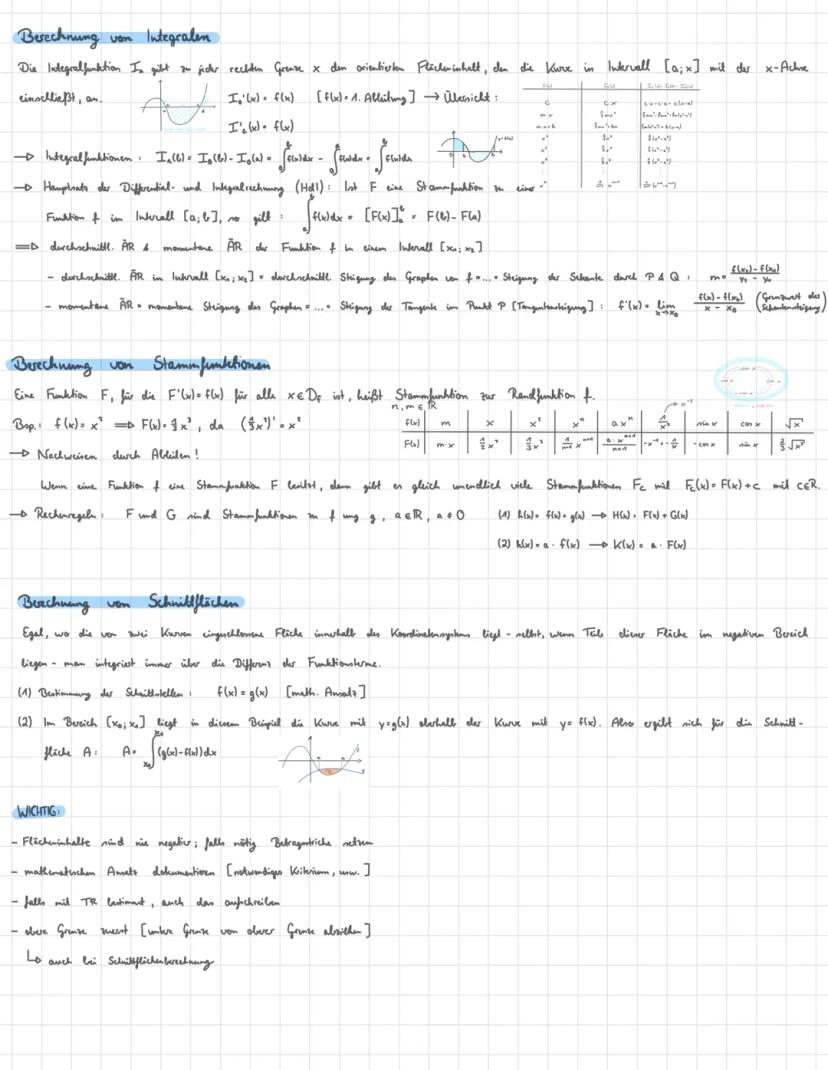 Berechnung von Integralen
Die Integralfunktion I₀ gibt zu jeder rechten Grenze x den orientierten Flächeninhalt, den die Kurve in Intervall [a;x] mit der x-Achse
einschließt, an.
I₀'(x) = f(x) [f(x) = 1. Ableitung] → Übersicht:
I'ₐ(x) = f(x)
→ Integralfunktionen: Iₐ(b) = I₀(b) - I₀(a) = ∫₀ᵇ f(x)dx - ∫₀ᵃ f(x)dx = ∫ₐᵇ f(x)dx
→ Hauptsatz der Differential- und Integralrechnung (HdI): Ist F eine Stammfunktion zu einer
Funktion f im Intervall [a;b], so gilt: ∫ₐᵇ f(x)dx = [F(x)]ₐᵇ = F(b) - F(a)
⇒ durchschnittl. ÄR & momentane ÄR der Funktion f in einem Intervall [x₁; x₂]
- durchschnittl. ÄR in Intervall [x₁; x₂] = durchschnittl. Steigung des Graphen von f = ... = Steigung der Sekante durch P & Q:
- momentane ÄR = momentane Steigung des Graphen = ... = Steigung der Tangente im Punkt P [Tangentensteigung]: f'(x) = lim x→x₀ (f(x) - f(x₀))/(x - x₀) (Grenzwert der Sekantensteigung)
Berechnung von Stammfunktionen
Eine Funktion F, für die F'(x) = f(x) für alle x ∈ D_F ist, heißt Stammfunktion zur Randfunktion f.
n, m ∈ ℝ
Bsp.: f(x) = x² ⇒ F(x) = ⅓x³, da (⅓x³)' = x²
→ x⁻²
f(x) | m | x | x² | xⁿ | a xⁿ | 1/x² | sin x | cos x | √x
F(x) | m·x | ½x² | ⅓x³ | 1/(n+1) xⁿ⁺¹ | (a·xⁿ⁺¹)/(n+1) | -x⁻¹ = -1/x | -cos x | sin x | ⅔√x³
→ Nachweisen durch Ableiten!
Wenn eine Funktion f eine Stammfunktion F besitzt, dann gibt es gleich unendlich viele Stammfunktionen F_C mit F_C(x) = F(x) + c mit c∈ℝ.
→ Rechenregeln: F und G sind Stammfunktionen zu f ung g, a ∈ ℝ, a ≠ 0 (1) h(x) = f(x) + g(x) → H(x) = F(x) + G(x)
(2) k(x) = a · f(x) → K(x) = a · F(x)
Berechnung von Schnittflächen
Egal, wo die von zwei Kurven eingeschlossene Fläche innerhalb des Koordinatensystems liegt - selbst, wenn Teile dieser Fläche im negativen Bereich
liegen - man integriert immer über die Differenz der Funktionsterme.
(1) Bestimmung der Schnittstellen: f(x) = g(x) [math. Ansatz]
(2) Im Bereich [x₀; x₁] liegt in diesem Beispiel die Kurve mit y=g(x) oberhalb der Kurve mit y= f(x). Also ergibt sich für die Schnitt-
fläche A: A = ∫ (g(x) - f(x)) dx
WICHTIG:
- Flächeninhalte sind nie negativ; falls nötig Betragsstriche setzen
- mathematischen Ansatz dokumentieren [notwendiges Kriterium, usw.]
- falls mit TR bestimmt, auch das aufschreiben
- obere Grenze zuerst [untere Grenze von oberer Grenze abziehen]
↳ auch bei Schnittflächenberechnung